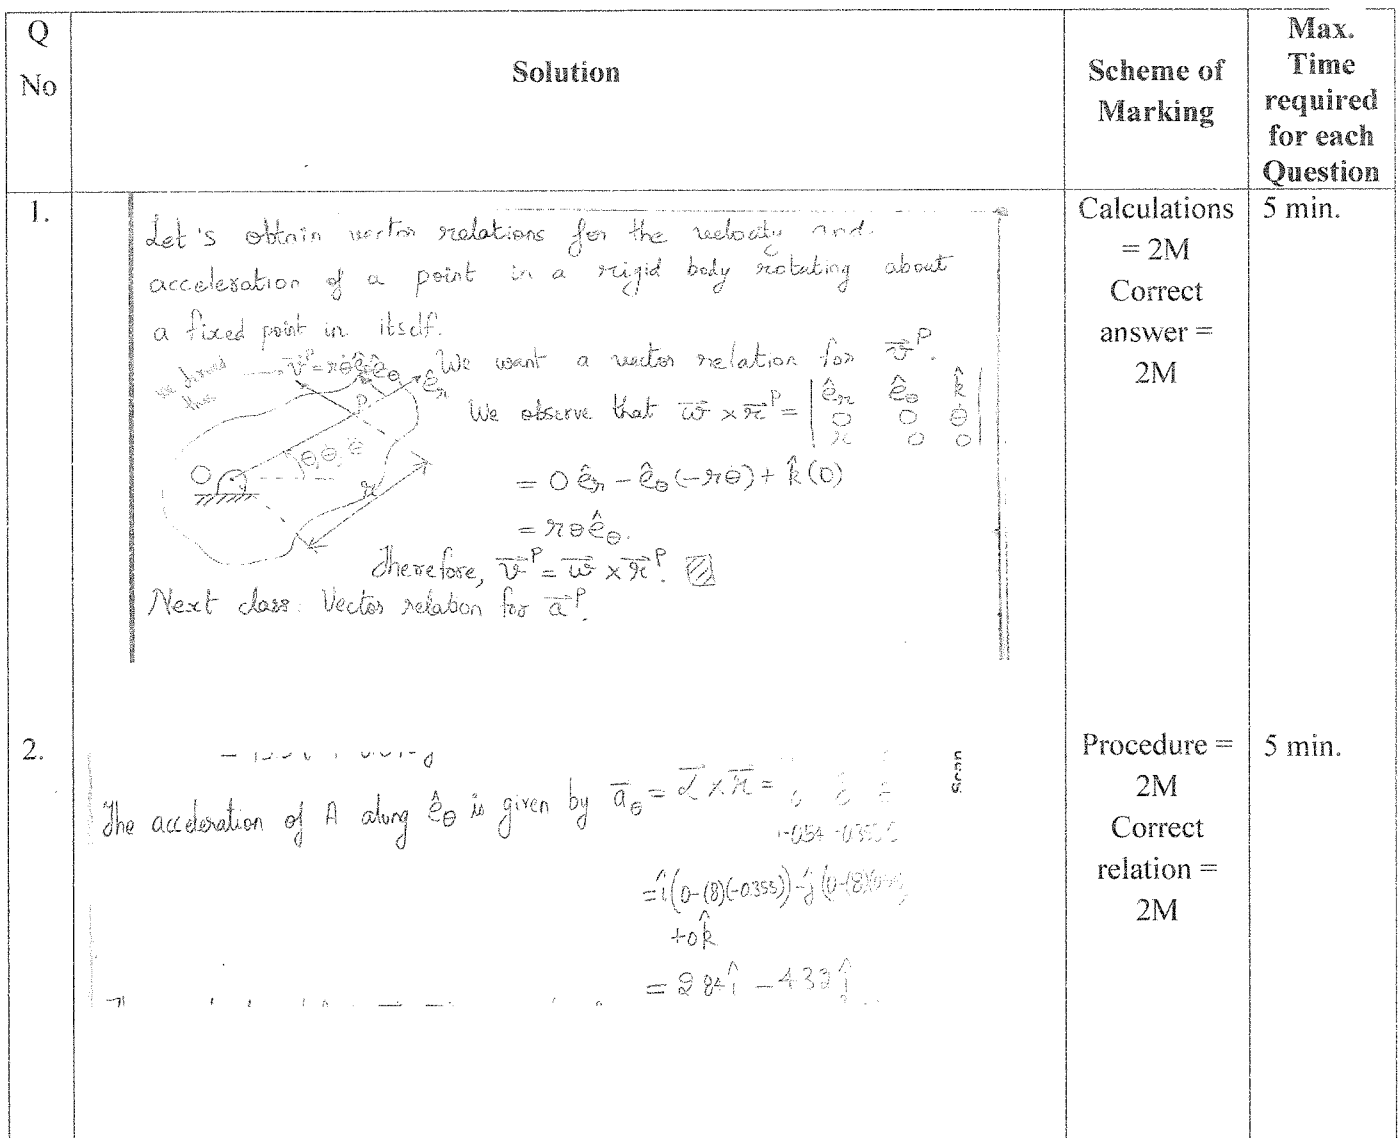 Q No
Solution
Scheme of Marking
Max. Time required for each Question
1.
Let's obtain vector relations for the velocity and
acceleration of a point in a rigid body rotating about
a fixed point in itself.
We want a vector relation for v⃗ᴾ.
v⃗ᴾ = rθ̇ê_θ
ê_θ
ê_r
P
O
θ, θ̇, θ̈
r
We observe that ω⃗ × r⃗ᴾ = | ê_r ê_θ k̂ |
| 0 0 θ̇ |
| r 0 0 |
= 0 ê_r - ê_θ (-rθ̇) + k̂ (0)
= rθ̇ ê_θ.
Therefore, v⃗ᴾ = ω⃗ × r⃗ᴾ.
Next class: Vector relation for a⃗ᴾ.
Calculations
= 2M
Correct
answer =
2M
5 min.
2.
Scan
The acceleration of A along ê_θ is given by a̅_θ = α̅ × r̅ =
= î(0-(8)(-0.355)) - ĵ(0-(8)
+0k̂
= 2.84î - 4.32ĵ
Procedure =
2M
Correct
relation =
2M
5 min.